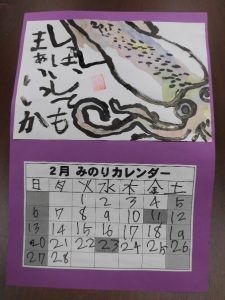 しっぱいしても
まぁいいか
2月 みのりカレンダー
日 月 火 水 木 金 土
1 2 3 4 5
6 7 8 9 10 11 12
13 14 15 16 17 18 19
20 21 22 23 24 25 26
27 28